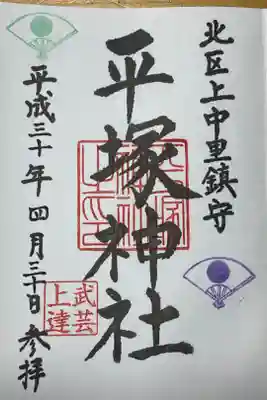 北区上中里鎮守
平塚神社
平成三十年四月三十日参拝
武芸
上達